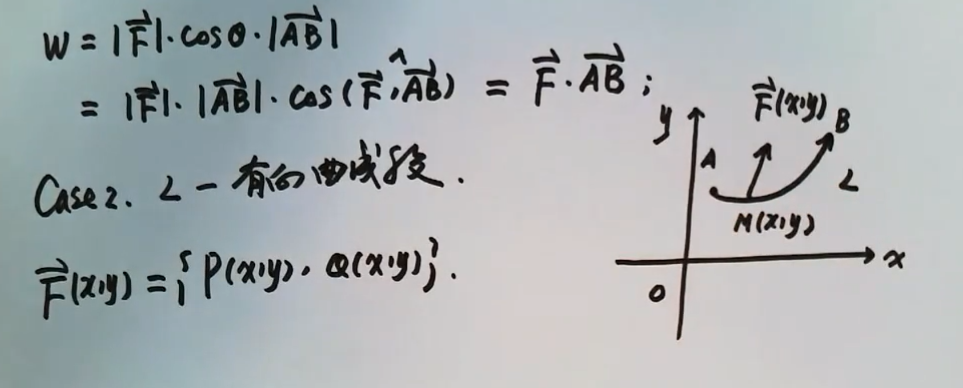 W = |F⃗|·cosθ·|AB⃗|
= |F⃗|·|AB⃗|·cos(F⃗,^AB⃗) = F⃗·AB⃗;
Case 2. L - 有向曲线段.
F⃗(x,y) = {P(x,y), Q(x,y)}.
y
F⃗(x,y)
B
A
L
M(x,y)
x
0